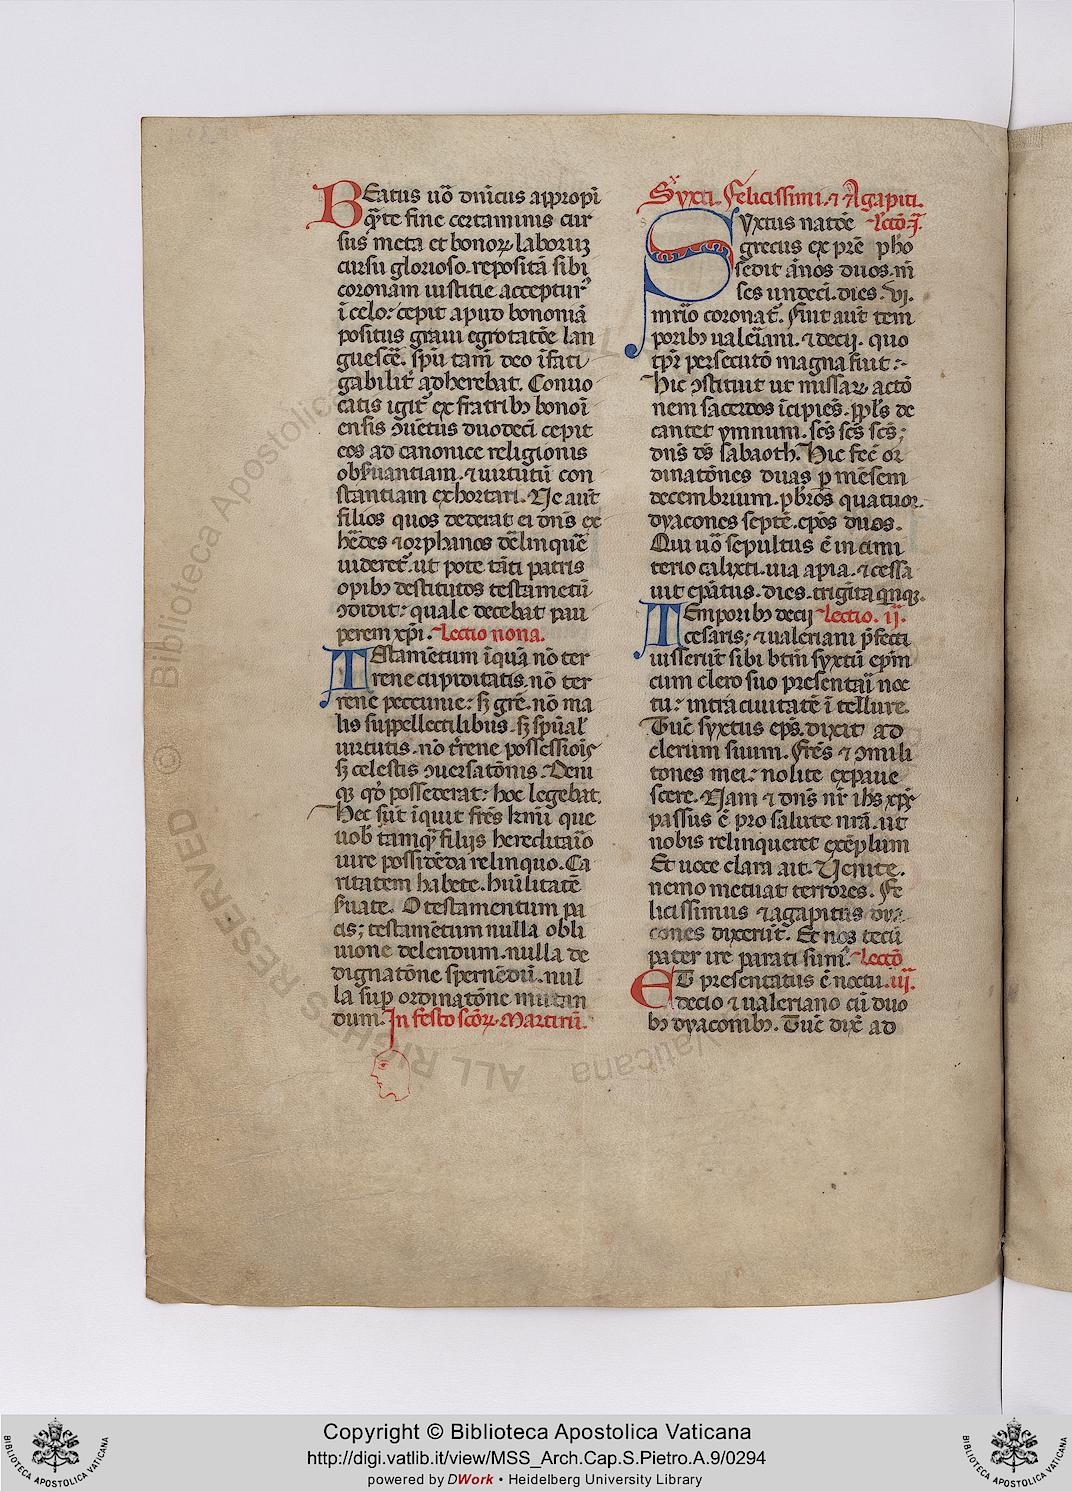 Beatus uo᷃ dnicus appropi
q̃te fine certaminis cur
sus meta et bonoꝝ laboruꝫ
cursu glorioso reposita᷃ sibi
coronam iustitie acceptur᷒
i᷃ celo: cepit apud bononia᷃
positus graui egrotatõe lan
guesce᷃. spu᷃ tam᷃ deo i᷃fati
gabilit᷃ adherebat. Conuo
catis igit᷃ ex fratribꝫ bonoi᷃
ensis ꝯuetus᷃ duodeci᷃ cepit
eos ad canonice religionis
obẛuantiam ⁊ uirtutu᷃ con
stantiam exhortari. Ne aut᷃
filios quos dederat ei dns᷃ ex
he᷃des ⁊ orphanos de᷃linque᷃
uideret᷃. ut pote ta᷃ti patris
opibꝫ destitutos testametu᷃
ꝯdidit: quale decebat pau
perem xp̃i. Lectio nona.
Testam᷃etum i᷃qua᷃ no᷃ ter
rene cupiditatis. no᷃ ter
rene peccunie: sꝫ gr̃e. no᷃ ma
lis suppellectilibus. sꝫ spu᷃al᷃
uirtutis. no᷃ t᷃rene possessiois᷃
sꝫ celestis ꝯuersato᷃nis. Deni
qꝫ qd᷃ possederat: hoc legebat.
Hec su᷃t inquit fres᷃ kmi᷃ que
uob᷃ tamq᷃ filijs hereditaio᷃
iure posside᷃da relinquo. Ca
ritatem habete. hu᷃ilitate᷃
ẛuate. O testamentum pa
cis; testame᷃tum nulla obli
uione delendum. nulla de
dignato᷃ne sperne᷃du᷃. nul
la sup ordinato᷃ne mutan
dum. In festo sco᷃ꝝ Martiru᷃.
Syxti. Felicissimi. ⁊ Agapiti.
Syxtus natõe lecto᷃ .j.
grecus ex pre᷃ pho
sedit a᷃nos duos. m᷃
ses undeci᷃. dies. vj.
mrio᷃ coronat᷃. Fuit aut᷃ tem
poribꝫ ualeia᷃ni. ⁊ decij. quo
tpr᷃ persecuto᷃ magna fuit:
Hic ꝯstituit ut missaꝝ acto᷃
nem sacerdos i᷃cipies᷃. ppls᷃ de
cantet ymnum. scs᷃ scs᷃ scs᷃;
dns᷃ ds᷃ sabaoth. Hic fec᷃ or
dinato᷃nes duas p me᷃sem
decembrium. pbros᷃ quatuor.
dyacones septe᷃. epos᷃ duos.
Qui uo᷃ sepultus e᷃ in cimi
terio calixti. uia apia. ⁊ cessa
uit epat᷃us. dies. trigi᷃ta qnqꝫ.
Temporibꝫ decij Lectio. ij.
cesaris; ⁊ ualeriani p᷃fecti
iusseru᷃t sibi btm᷃ syxtu᷃ epm᷃
cum clero suo presentari noc
tu: intra ciuitate᷃ i᷃ tellure.
Tu᷃c syxtus eps᷃ dixit ad
clerum suum. Fres᷃ ⁊ ꝯmili
tones mei: nolite expaue
scere. Nam ⁊ dns᷃ nr᷃ ihs᷃ xps᷃
passus e᷃ pro salute nra᷃. ut
nobis relinqueret exe᷃plum
Et uoce clara ait. Uenite.
nemo metuat terrores. Fe
licissimus ⁊ agapitus dya
cones dixeru᷃t. Et nos tecu᷃
pater ire parati sum᷒. Lecto᷃
Et presentatus e᷃ noctu. iij.
decio ⁊ ualeriano cu᷃ duo
bꝫ dyaconibꝫ. Tu᷃c dix᷃ ad
© Biblioteca Apostolica Vaticana
ALL RIGHTS RESERVED
Copyright © Biblioteca Apostolica Vaticana
http://digi.vatlib.it/view/MSS_Arch.Cap.S.Pietro.A.9/0294
powered by DWork • Heidelberg University Library
BIBLIOTECA APOSTOLICA VATICANA
BIBLIOTECA APOSTOLICA VATICANA